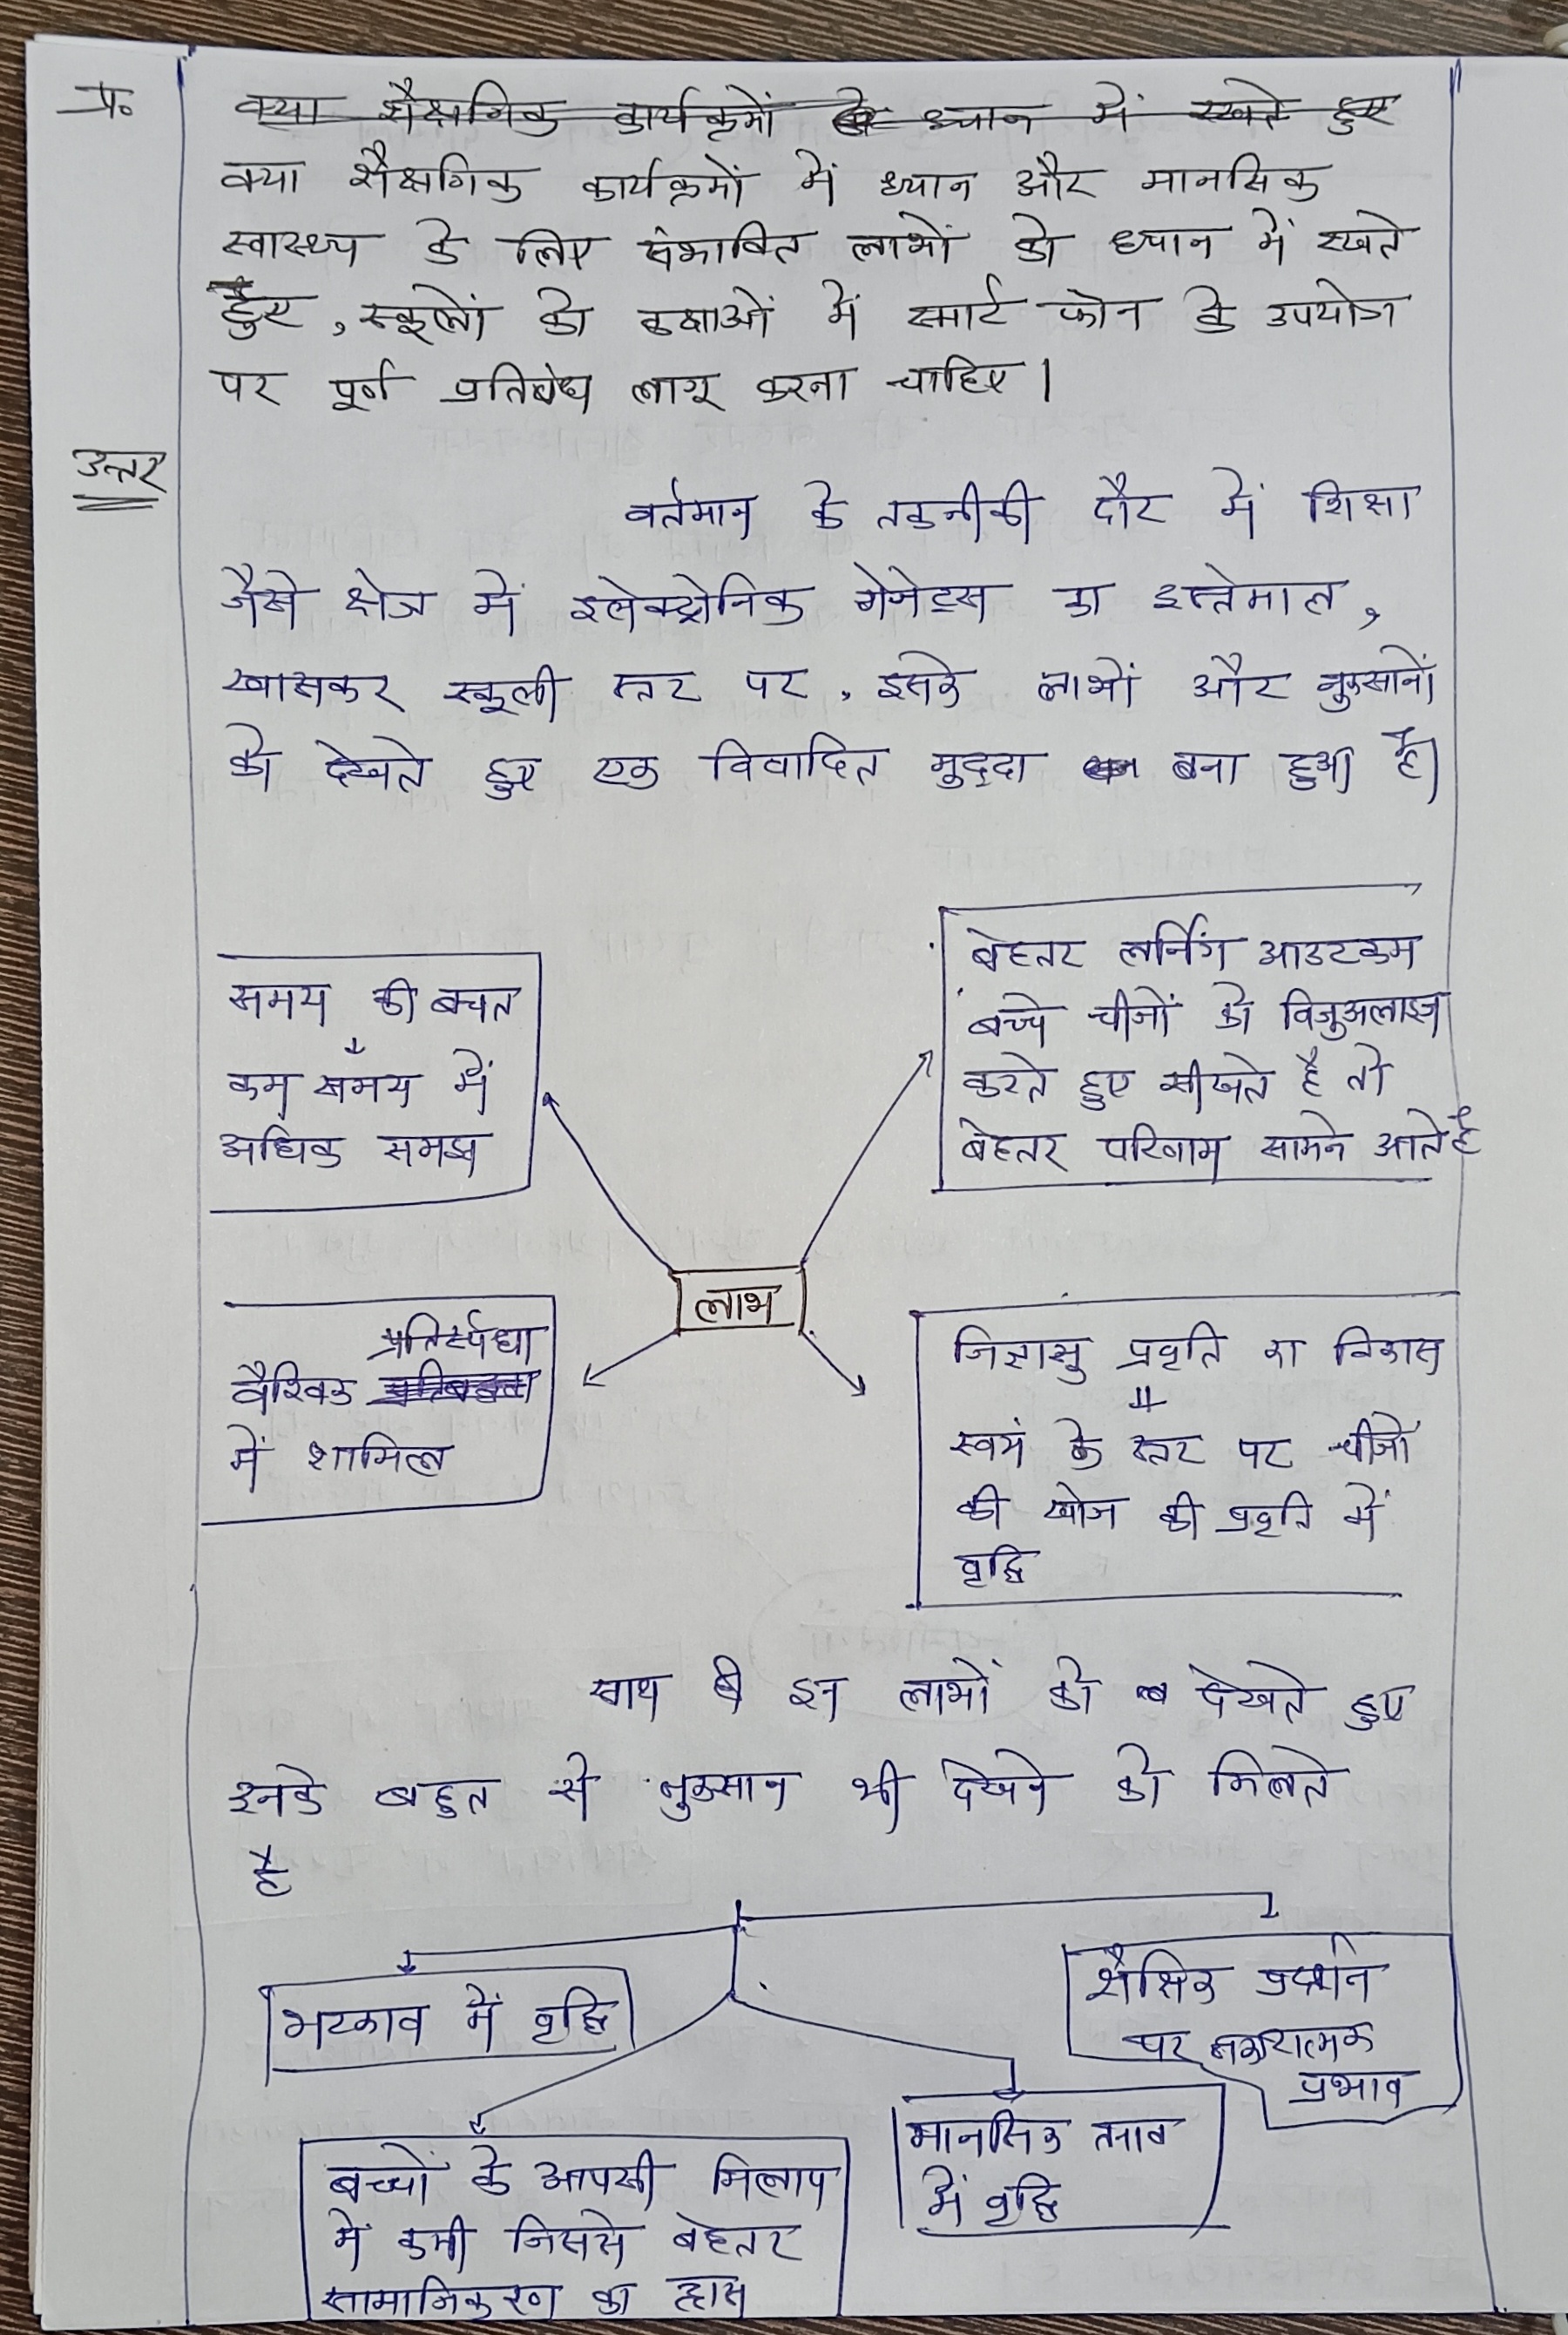 प्र.
क्या शैक्षणिक कार्यक्रमों को ध्यान में रखते हुए
क्या शैक्षणिक कार्यक्रमों में ध्यान और मानसिक
स्वास्थ्य के लिए संभावित लाभों को ध्यान में रखते
हुए, स्कूलों को कक्षाओं में स्मार्ट फोन के उपयोग
पर पूर्ण प्रतिबंध लागू करना चाहिए।
उत्तर
वर्तमान के तकनीकी दौर में शिक्षा
जैसे क्षेत्र में इलेक्ट्रोनिक गेजेट्स का इस्तेमाल,
खासकर स्कूली स्तर पर, इसके लाभों और नुकसानों
को देखते हुए एक विवादित मुद्दा बना हुआ है।
समय की बचत
↓
कम समय में
अधिक समझ
बेहतर लर्निंग आउटकम
बच्चे चीजों को विजुअलाइज
करते हुए सीखते है तो
बेहतर परिणाम सामने आते है
लाभ
प्रतिर्स्पधा
वैश्विक
में शामिल
जिज्ञासु प्रवृति का विकास
स्वयं के स्तर पर चीजों
की खोज की प्रवृति में
वृद्धि
साथ ही इन लाभों को देखते हुए
इनके बहुत से नुकसान भी देखने को मिलते
है
भटकाव में वृद्धि
शैक्षिक प्रदर्शन
पर नकारात्मक
प्रभाव
मानसिक तनाव
में वृद्धि
बच्चों के आपसी मिलाप
में कमी जिससे बेहतर
सामाजिकरण का ह्रास